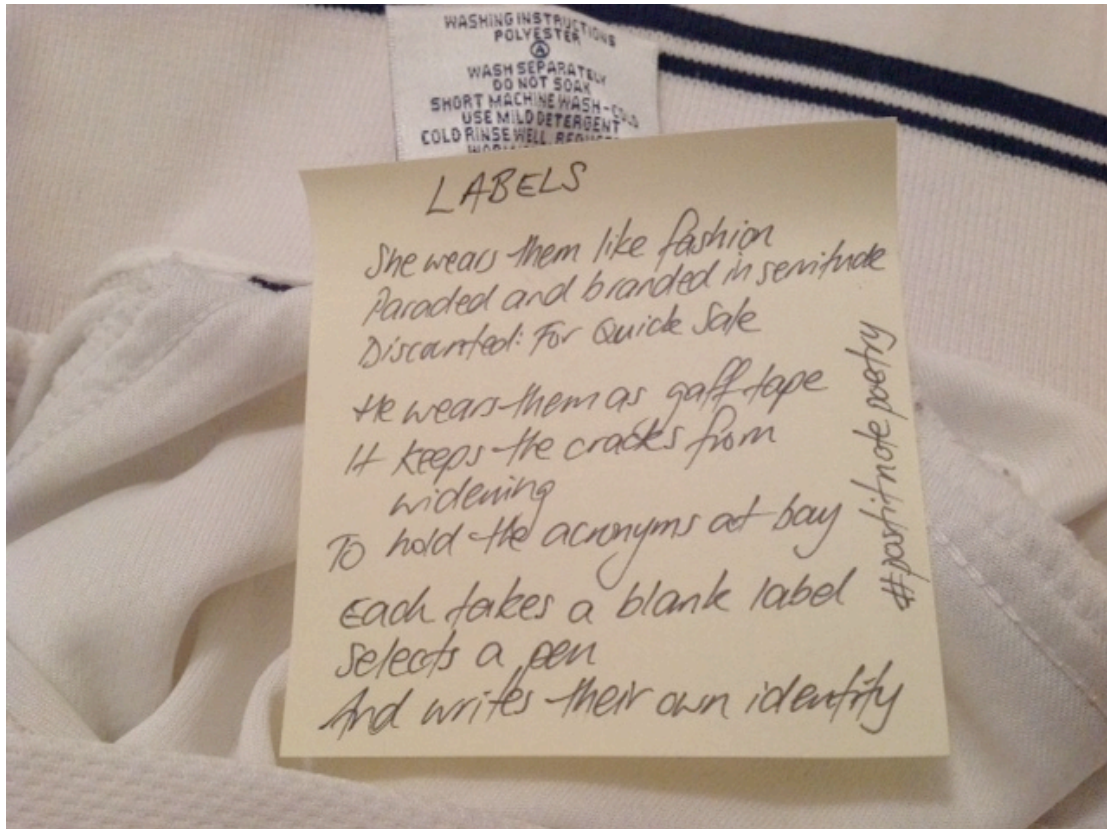 WASHING INSTRUCTIONS
POLYESTER
A
WASH SEPARATELY
DO NOT SOAK
SHORT MACHINE WASH-COLD
USE MILD DETERGENT
COLD RINSE WELL.
LABELS
She wears them like fashion
Paraded and branded in servitude
Discounted: For Quick Sale
He wears them as gaff tape
It keeps the cracks from
widening
To hold the acronyms at bay
Each takes a blank label
Selects a pen
And writes their own identity
#postitnotepoetry